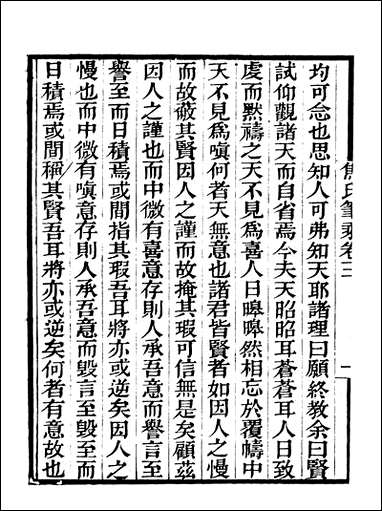 均可念也思知人可弗知天耶諸理曰願終教余曰賢
試仰觀諸天而自省焉今夫天昭昭耳蒼蒼耳人日致
虔而默禱之天不見為喜人日皞皞然相忘於覆幬中
天不見為嗔何者天無意也諸君皆賢者如因人之慢
而故蔽其賢因人之謹而故掩其瑕可信無是矣顧茲
因人之謹也而中微有喜意存則人承吾意而譽言至
譽至而日積焉或間指其瑕吾耳將亦或逆矣因人之
慢也而中微有嗔意存則人承吾意而毀言至毀至而
日積焉或間稱其賢吾耳將亦或逆矣何者有意故也
焦氏筆乘卷三
一